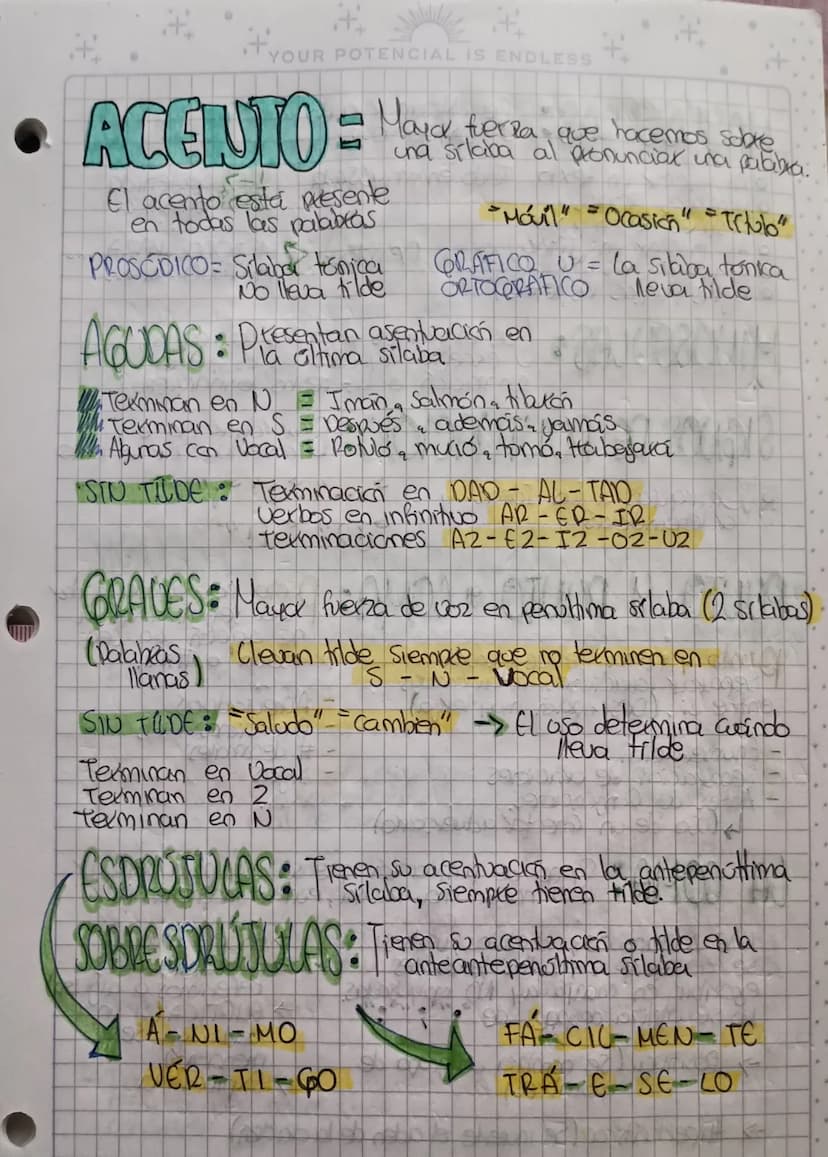 YOUR POTENCIAL IS ENDLESS
ACENTO = Mayor fuerza que hacemos sobre
una sílaba al pronunciar una palabra.
El acento está presente
en todas las palabras
"Móvil" "Ocasión" "Título"
PROSÓDICO = Sílaba tónica
No lleva tilde
GRÁFICO U = La sílaba tónica
ORTOGRÁFICO lleva tilde
AGUDAS: Presentan asentuación en
la última sílaba
Terminan en N = Imán, Salmón, tiburón
Terminan en S = Después, además, jamás
Algunas con Vocal = Rompió, murió, tomó, trabajará
SIN TILDE: Terminación en DAD - AL - TAD
verbos en infinitivo AR - ER - IR
terminaciones AZ - EZ - IZ - OZ - UZ
GRAVES: Mayor fuerza de voz en penúltima sílaba (2 sílabas)
(Palabras Llevan tilde siempre que no terminen en
llanas) S - N - Vocal
SIN TILDE: "Saludo" "Cambien" → El uso determina cuándo
lleva tilde
Terminan en Vocal -
Terminan en 2 -
Terminan en N -
ESDRÚJULAS: Tienen su acentuación en la antepenúltima
sílaba, siempre tienen tilde.
SOBRESDRÚJULAS: Tienen su acentuación o tilde en la
anteantepenúltima sílaba
Á - NI - MO
VÉR - TI - GO
FÁ - CIL - MEN - TE
TRÁ - E - SE - LO